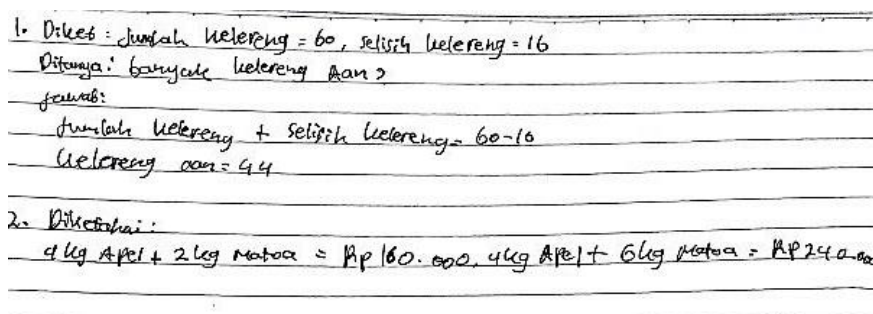 1. Diket : Jumlah kelereng = 60, selisih kelereng = 16
Ditanya : banyak kelereng Aan ?
Jawab :
Jumlah kelereng + selisih kelereng = 60-16
kelereng aan = 44
2. Diketahui :
4 kg Apel + 2 kg Matoa = Rp 160.000, 4kg Apel + 6kg Matoa = RP240.000